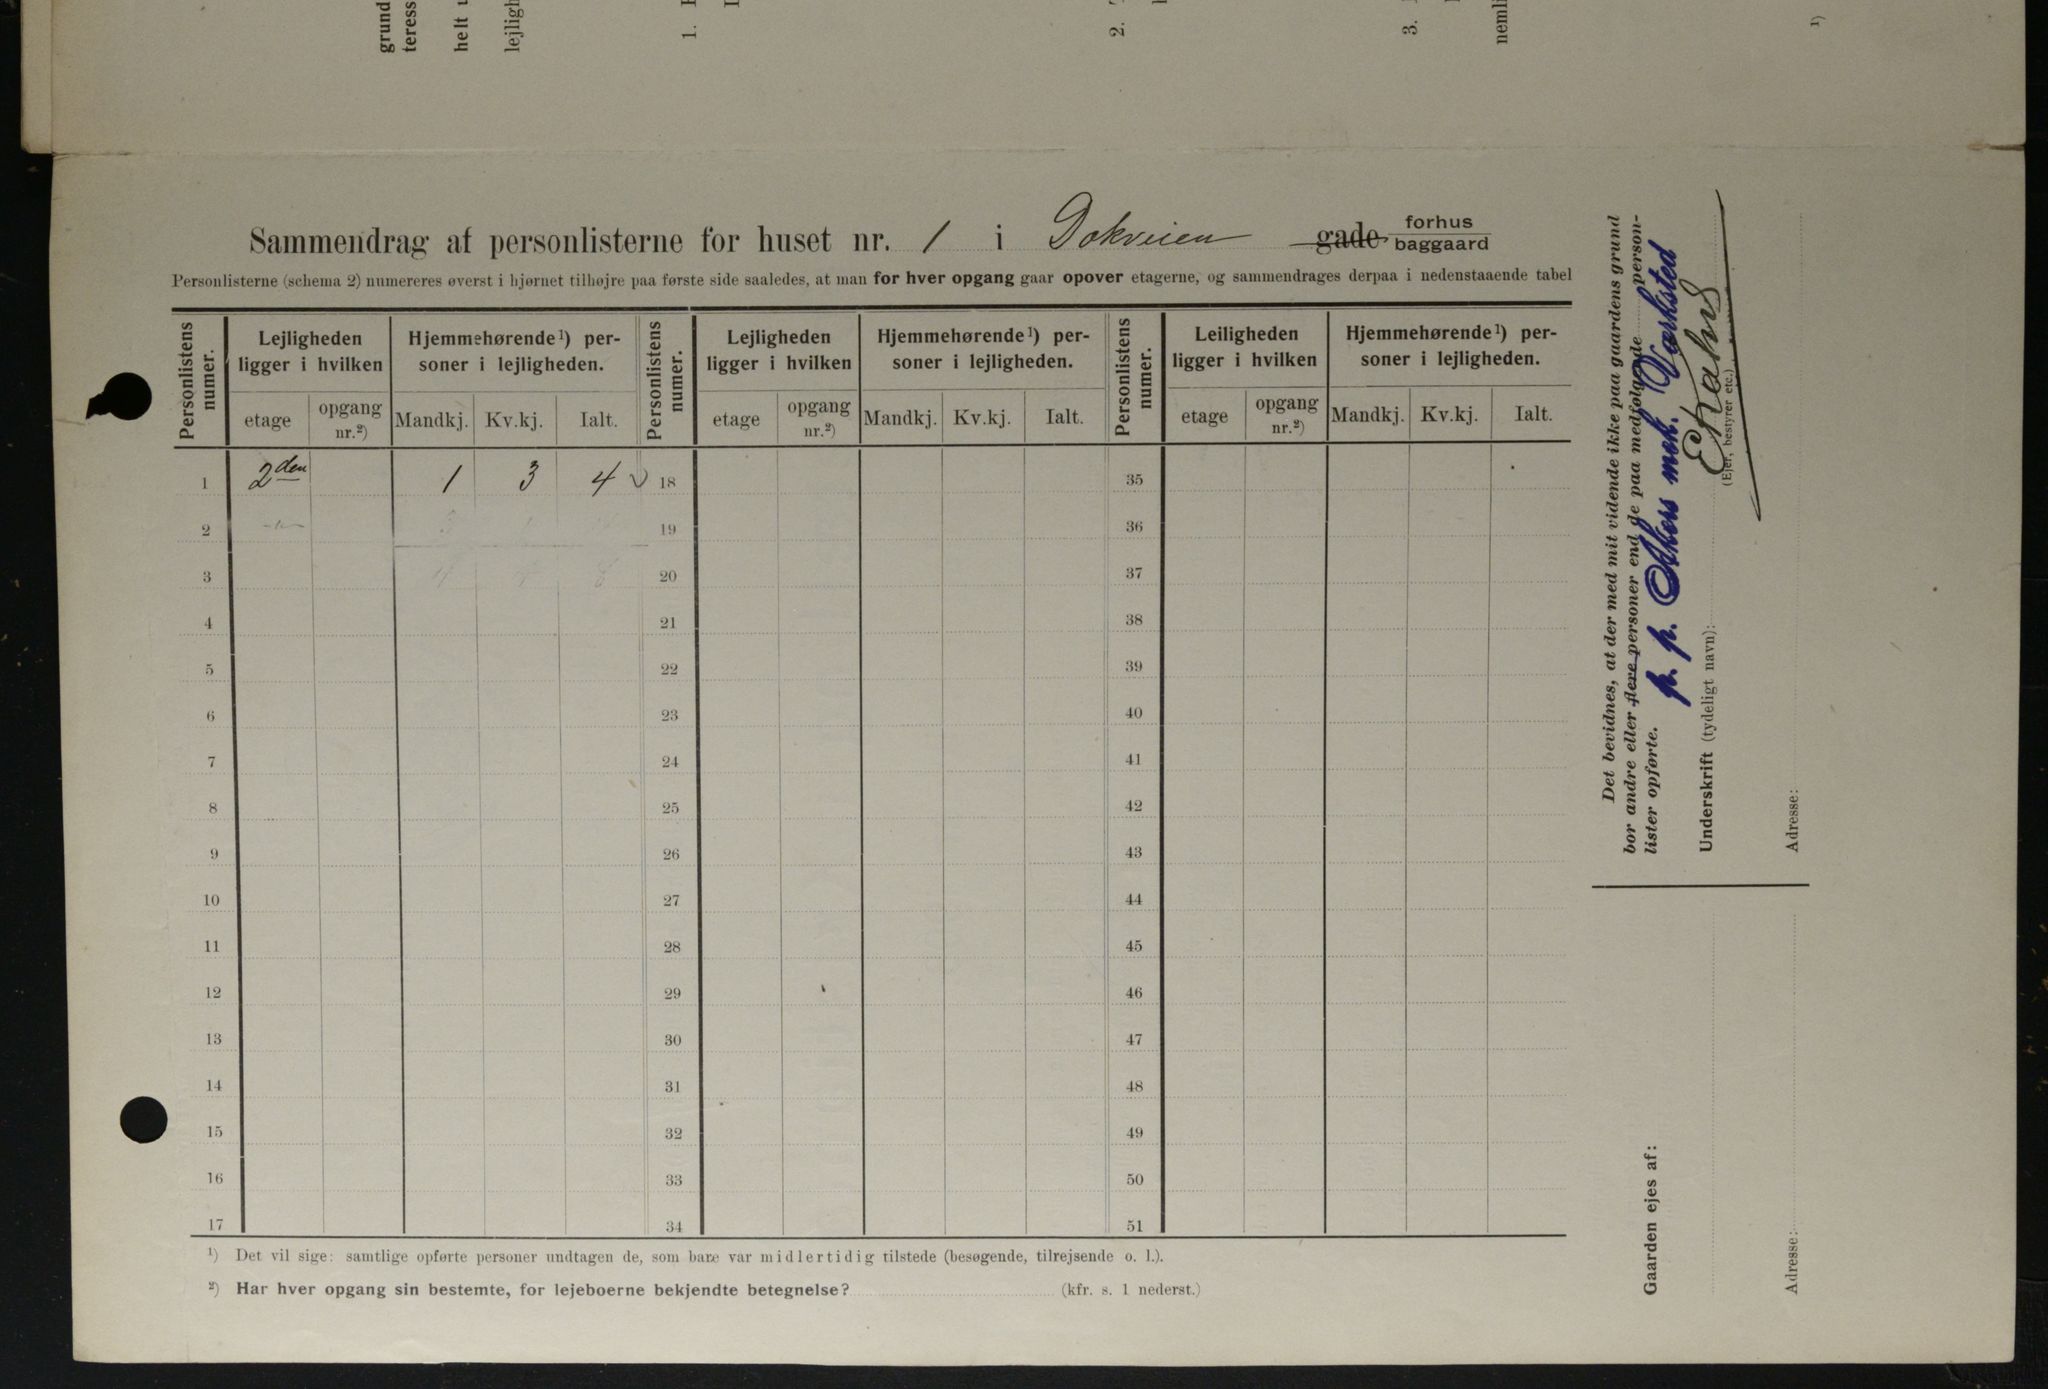 grund
teress
helt
lejligh
1.
2.
3.
nemli
1)
Sammendrag af personlisterne for huset nr. 1 i Dokveien gade forhus baggaard
Personlisterne (schema 2) numereres øverst i hjørnet tilhøjre paa første side saaledes, at man for hver opgang gaar opover etagerne, og sammendrages derpaa i nedenstaaende tabel
Personlistens numer. Lejligheden ligger i hvilken Hjemmehørende1) personer i lejligheden. Personlistens numer. Lejligheden ligger i hvilken Hjemmehørende1) personer i lejligheden. Personlistens numer. Leiligheden ligger i hvilken Hjemmehørende1) personer i lejligheden.
etage opgang nr.2) Mandkj. Kv.kj. Ialt. etage opgang nr.2) Mandkj. Kv.kj. Ialt. etage opgang nr.2) Mandkj. Kv.kj. Ialt.
1 2den 1 3 4 18 35
2 19 36
3 20 37
4 21 38
5 22 39
6 23 40
7 24 41
8 25 42
9 26 43
10 27 44
11 28 45
12 29 46
13 30 47
14 31 48
15 32 49
16 33 50
17 34 51
1) Det vil sige: samtlige opførte personer undtagen de, som bare var midlertidig tilstede (besøgende, tilrejsende o. l.).
2) Har hver opgang sin bestemte, for lejeboerne bekjendte betegnelse? (kfr. s. 1 nederst.)
Det bevidnes, at der med mit vidende ikke paa gaardens grund
bor andre eller flere personer end de paa medfølgende person-
lister opførte.
p. p. Akers mek. Værksted
Underskrift (tydeligt navn):
(Ejer, bestyrer etc.)
Adresse:
Gaarden ejes af:
Adresse: